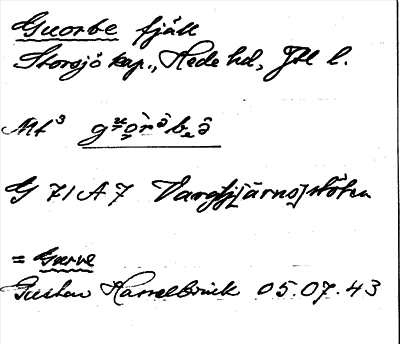 Guorbe fjäll
Storsjö kap., Hede hd, Jtl l.
Mt³
G 71 A 7 Vargtjärnsstöten
= Gurve
Gustav Hasselbrink 05.07.43